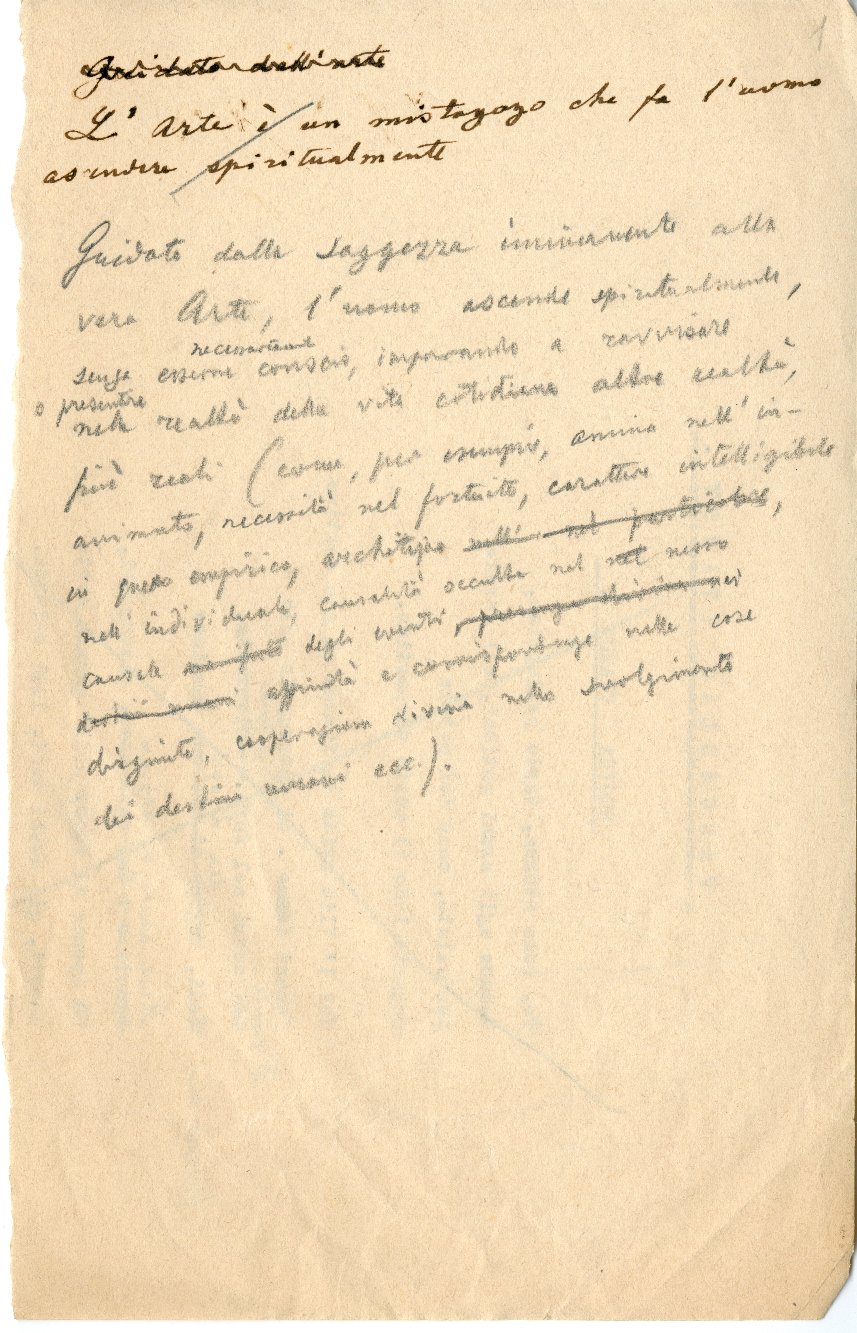 1
Guidato dall'arte
L'Arte è un mistagogo che fa l'uomo
ascendere spiritualmente
Guidato dalla saggezza immanente alla
vera Arte, l'uomo ascende spiritualmente,
necessariamente
senza esserne conscio, imparando a ravvisare
o presentire
nella realtà della vita cotidiana altre realtà,
più reali (come, per esempio, anima nell'in-
animato, necessità nel fortuito, carattere intelligibile
in quello empirico, archetipo nell' nel particolare,
nell'individuale, causalità occulta nel nel nesso
causale degli eventi, presenza divina nei
destini umani affinità e corrispondenze nelle cose
disgiunte, cooperazione divina nello svolgimento
dei destini umani ecc.).